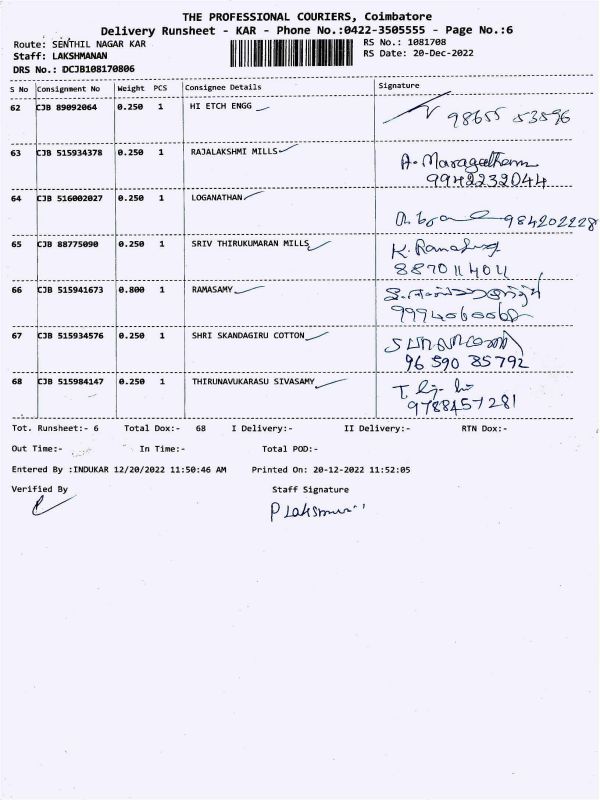 THE PROFESSIONAL COURIERS, Coimbatore
Delivery Runsheet - KAR - Phone No.:0422-3505555 - Page No.:6
Route: SENTHIL NAGAR KAR RS No.: 1081708
Staff: LAKSHMANAN RS Date: 20-Dec-2022
DRS No.: DCJB108170806
S No Consignment No Weight PCS Consignee Details Signature
62 CJB 89092064 0.250 1 HI ETCH ENGG 98655 53596
63 CJB 515934378 0.250 1 RAJALAKSHMI MILLS
9942232044
64 CJB 516002027 0.250 1 LOGANATHAN
984202228
65 CJB 88775090 0.250 1 SRIV THIRUKUMARAN MILLS
8870114011
66 CJB 515941673 0.800 1 RAMASAMY
67 CJB 515934576 0.250 1 SHRI SKANDAGIRU COTTON
96590 85792
68 CJB 515984147 0.250 1 THIRUNAVUKARASU SIVASAMY
9788457281
Tot. Runsheet:- 6 Total Dox:- 68 I Delivery:- II Delivery:- RTN Dox:-
Out Time:- In Time:- Total POD:-
Entered By :INDUKAR 12/20/2022 11:50:46 AM Printed On: 20-12-2022 11:52:05
Verified By Staff Signature